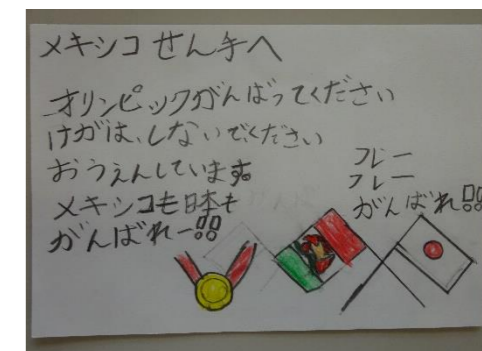 メキシコ せん手へ
オリンピックがんばってください
けがは、しないで、ください
おうえんしています。
メキシコも日本も
がんばれー!!
フレー
フレー
がんばれ!!